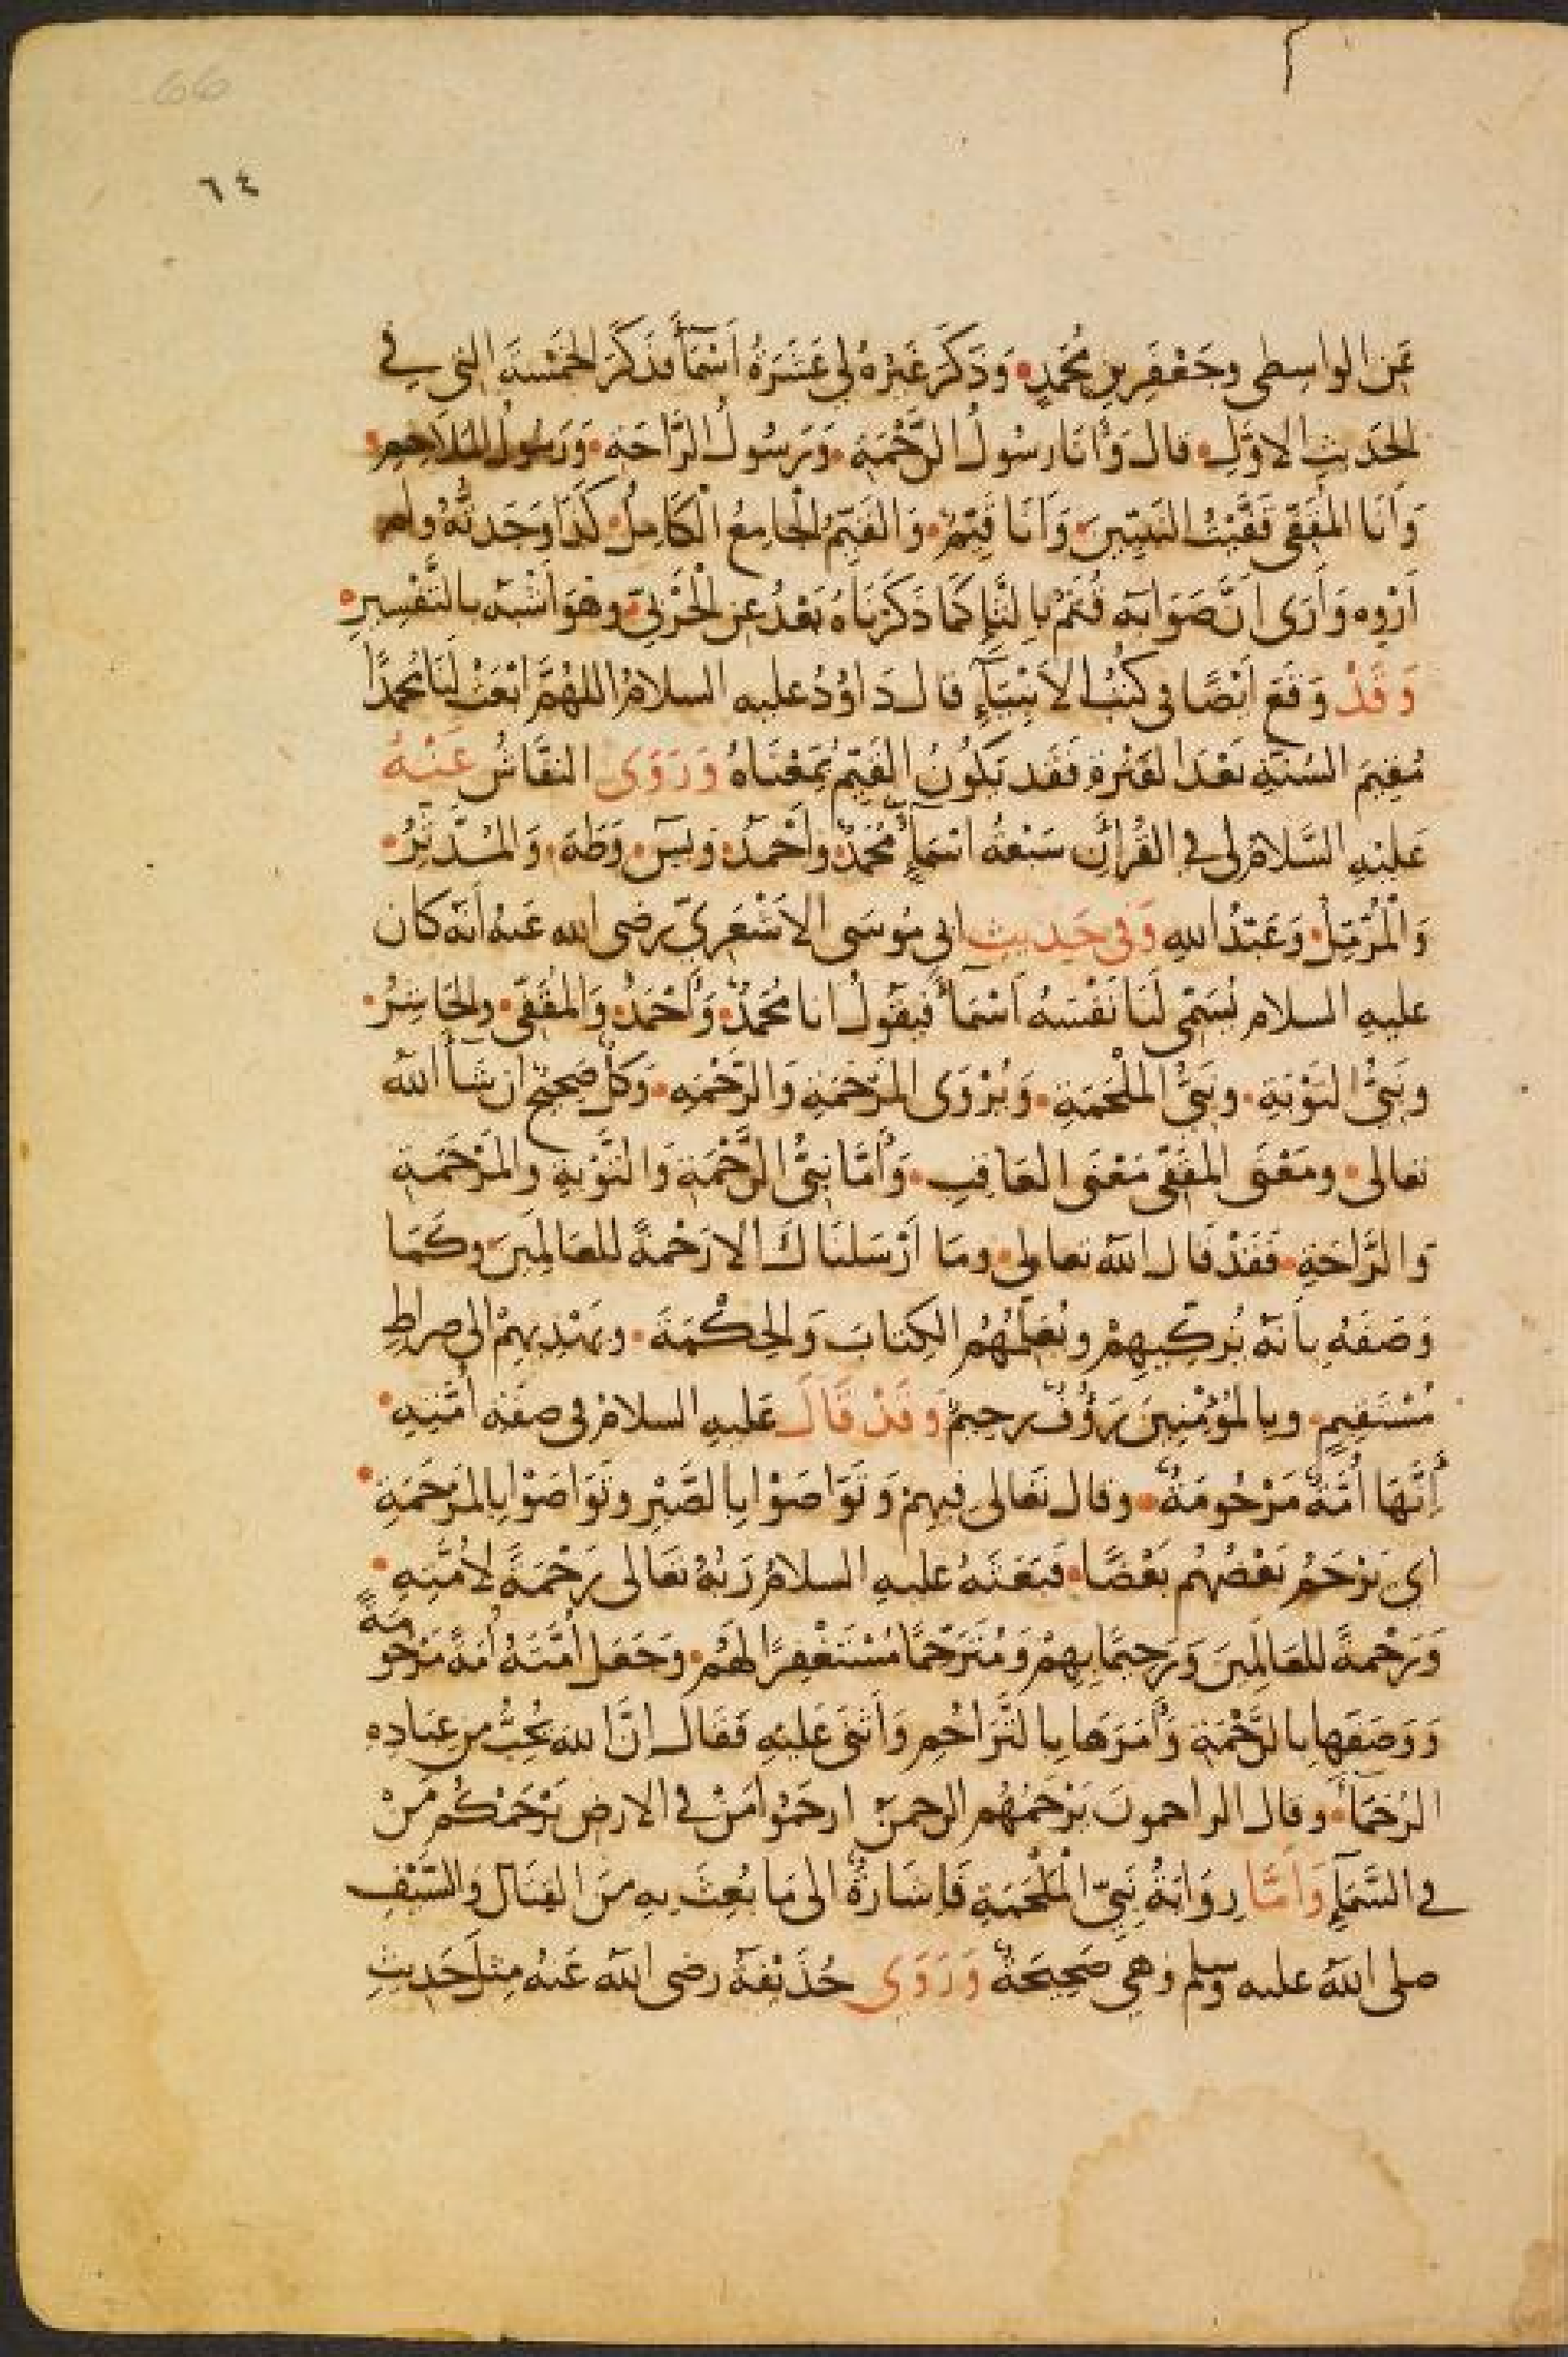 66
٦٤
عَن الواسطى وجَعْفَرِ بنِ مُحَمَّدٍ • وَذَكَرَ غَيْرُهُ لى عَشَرَةُ اَسْمَآءٍ فذَكَرَ الخَمْسَةَ التى فى
الحَدِيثِ الاَوَّلِ • قال وَاَنَا رسُولُ الرَّحْمَةِ • وَرَسُولُ الرَّاحَةِ • وَرَسُولُ المَلَاحِمِ •
وَاَنَا المُقَفّى قَفَّيْتُ النَّبِيّينَ • وَاَنَا قَيِّمٌ • وَالقَيِّمُ الجامِعُ الْكَامِلُ • كَذَا وَجَدتُّهُ ولم
اَرْوِهِ وَاَرَى اَنَّ صَوَابَه قُثَمٌ بِالثَّاءِ كَمَا ذَكَرْنَاهُ بَعْدُ عن الْحَرْبِىّ • وهوَ اَشْبَه بالتَّفْسِيرِ •
وَقَدْ وَقَعَ اَيْضًا فى كُتُبِ الاَنْبِيَآءِ قال دَاوُدُ عليه السلامُ اللهُمَّ ابْعَثْ لَنَا مُحمَّدًا
مُقِيمَ السُنَّةِ بَعْدَ الفَتْرَةِ فَقَد يَكُونُ القَيِّمُ بِمَعْنَاهُ وَرَوَى النقَّاشُ عَنْهُ
عَلَيْهِ السَّلَامُ لى فى القُرْاٰنِ سَبْعَةُ اسْمَآءٍ مُحَمَّدٌ • وَاَحْمَدُ • وَيٰسٓ • وَطٰهَ • وَالمُدَّثِّرُ •
وَالْمُزَّمِّلُ • وَعَبْدُ اللهِ وَفى حَدِيثِ ابى مُوسَى الاَشْعَرِىّ رضى الله عَنهُ اَنّه كان
عليهِ السلام يُسَمّى لَنَا نَفْسَهُ اَسْمَآءً فَيقُولُ انا مُحَمَّدٌ • وَاَحْمَدُ • وَالمُقَفّى • والحَاشِرُ •
ونَبِىُّ التَوْبَةِ • ونَبِىُّ الْمَلْحَمَةِ • وَيُرْوَى الْمَرْحَمَةِ وَالرَّحْمَةِ • وَكلٌّ صَحِيحٌ ان شَآءَ اللّٰه
تعالى • ومَعْنَى المقَفّى مَعْنَى العَاقِبِ • وَاَمَّا نَبِىُّ الرَّحْمَةِ وَالتَوْبَةِ والمَرْحَمَةِ
وَالرَّاحَةِ • فَقَدْ قَال اللّٰه تعالى • ومَا اَرْسَلنَاكَ الا رَحْمَةً للعَالَمِينَ • وكَمَا
وَصَفَهُ بِاَنّه يُزَكِّيهِمْ ويُعَلّمُهُمُ الكِتَابَ وَالحِكْمَةَ • ويَهْدِيهِمْ الى صِراطٍ
مُسْتَقِيمٍ • وبِالْمُؤْمِنِينَ رَؤُفٌ رَحِيمٌ وَقَدْ قَالَ عَليهِ السلامُ فى صفَةِ اُمَّتِهِ •
اِنَّهَا اُمَّةٌ مَرْحُومَةٌ • وقال تَعَالى فِيهِمْ وَتَوَاصَوْا بِالصَّبْرِ وتَوَاصَوْا بِالمَرْحَمَةِ •
اى يَرْحَمُ بَعْضُهُم بَعْضًا • فَبَعَثَهُ عليهِ السلامُ رَبُّهُ تَعَالى رَحْمَةً لِاُمَّتِهِ •
وَرَحْمَةً للعَالَمِينَ وَرَحِيمًا بِهِمْ وَمُتَرَحِّمًا مُسْتَغْفِرًا لَهُمْ • وَجَعَلَ اُمَّتَهُ اُمّةً مَرْحُومَةً
وَوصَفَها بالرَّحْمَةِ وَاَمَرَها بِالتَّرَاحُمِ وَاَثْنَى عَلَيْهِ فَقَال اِنَّ اللهَ يُحِبُّ مِن عِبَادِهِ
الرُحَمَآءَ • وقال الراحمونَ يَرْحَمُهُم الرحمنُ ارحَمُوا مَنْ فى الارضِ يَرْحَمْكُم مَنْ
فى السَّمَآءِ وَاَمَّا رِوَايَةُ نَبِىّ الْمَلْحَمَةِ فَاِشَارَةٌ الى مَا بُعِثَ بِهِ مِنَ القِتَالِ وَالسَّيْفِ
صلى اللّٰه عليه وسلم وَهى صَحِيحَةٌ وَرَوَى حُذَيْفَةُ رضى اللّٰه عَنهُ مِثلَ حَدِيثِ